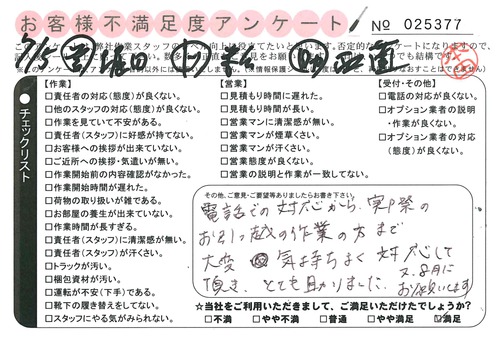 お客様不満足度アンケート
№ 025377
チェックリスト
【作業】
□責任者の対応(態度)が良くない。
□他のスタッフの対応(態度)が良くない。
□作業を見ていて不安がある。
□責任者(スタッフ)に好感が持てない。
□お客様への挨拶が出来ていない。
□ご近所への挨拶・気遣いが無い。
□作業開始前の内容確認がなかった。
□作業開始時間が遅れた。
□荷物の取り扱いが雑である。
□お部屋の養生が出来ていない。
□作業時間が長すぎる。
□責任者(スタッフ)に清潔感が無い。
□責任者(スタッフ)が汗くさい。
□トラックが汚い。
□梱包資材が汚い。
□運転が不安(下手)である。
□靴下の履き替えをしてない。
□スタッフにやる気がみられない。
【営業】
□見積もり時間に遅れた。
□見積もり時間が長い。
□営業マンに清潔感が無い。
□営業マンが煙草くさい。
□営業マンが汗くさい。
□営業態度が良くない。
□営業の説明と作業が一致してない。
【受付・その他】
□電話の対応が良くない。
□オプション業者の説明
・作業が良くない。
□オプション業者の対応
(態度)が良くない。
その他、ご意見・ご要望等ありましたらお書き下さい。
電話での対応から、実際の
お引っ越の作業の方まで
大変 気持ちよく対応して
頂き、とても助かりました。
又、8月に
お願いします
★当社をご利用いただきまして、ご満足いただけたでしょうか?
□不満 □やや不満 □普通 □やや満足 ☑満足